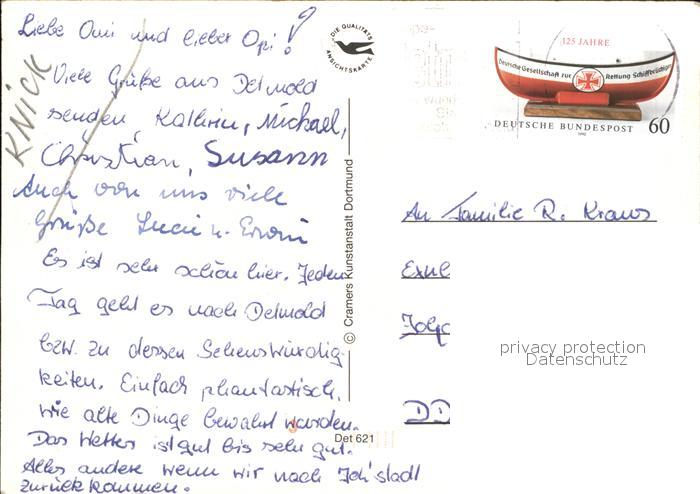 Liebe Omi und lieber Opi!
Viele Grüße aus Detmold
senden, Kathrin, Michael,
Christian, Susann
Auch von uns viele
Grüße Luci u. Erwin
Es ist sehr schön hier. Jeden
Tag geht es nach Detmold
bzw. zu dessen Sehenswürdig-
keiten. Einfach phantastisch,
wie alte Dinge bewahrt wurden.
Das Wetter ist gut bis sehr gut.
Alles andere wenn wir nach Joh'stadt
zurückkommen.
KNICK
DIE QUALITÄTS
ANSICHTSKARTE
© Cramers Kunstanstalt Dortmund
Det 621
125 JAHRE
Deutsche Gesellschaft zur Rettung Schiffbrüchiger
DEUTSCHE BUNDESPOST 60
1990
An Familie R. Kraus
privacy protection
Datenschutz